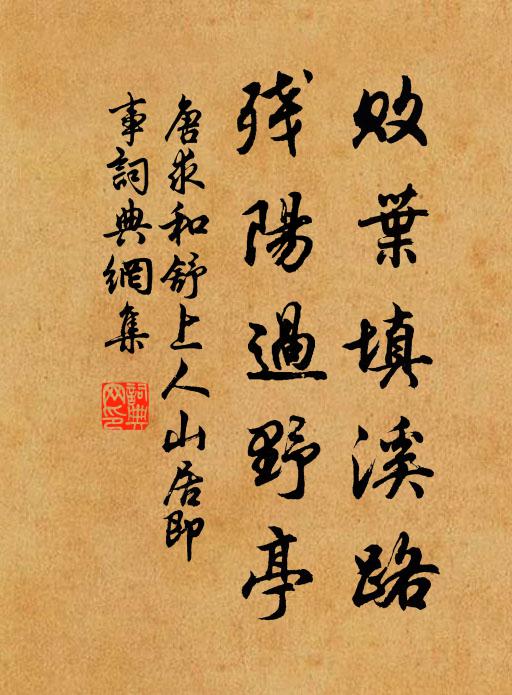 败葉填溪路
残陽過野亭
唐求和舒上人山居即
事詞典網集
詞典
网印